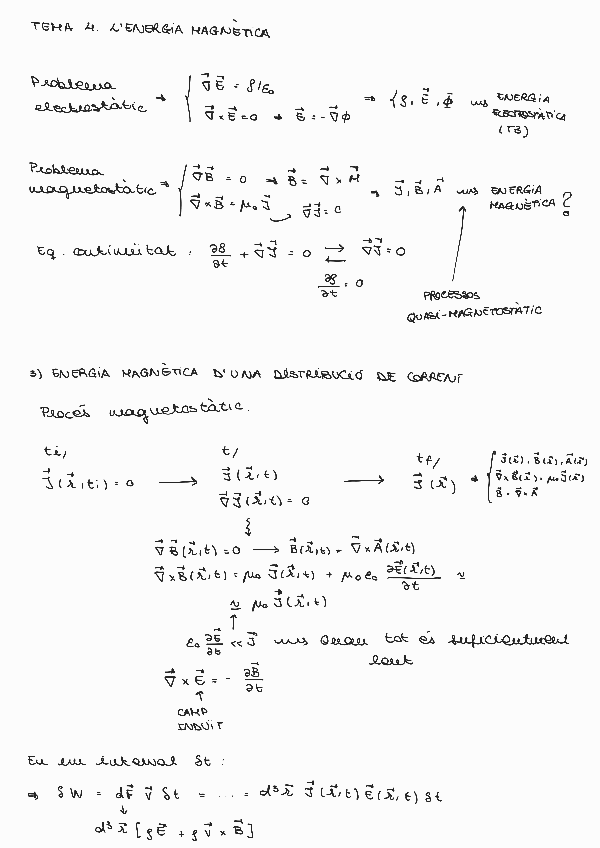 TEMA 4. L'ENERGIA MAGNÈTICA
Problema electrostàtic → { ∇⃗E⃗ = ρ/ε₀
∇⃗×E⃗=0 → E⃗=-∇⃗ϕ ⇒ {ρ, E⃗, ϕ ⇝ ENERGIA ELECTROSTÀTICA (T3)
Problema magnetostàtic → { ∇⃗B⃗ = 0 → B⃗ = ∇⃗ × A⃗
∇⃗×B⃗ = μ₀ J⃗ ∇⃗J⃗=0 ⇒ J⃗, B⃗, A⃗ ⇝ ENERGIA MAGNÈTICA ?
Eq. continuïtat : ∂ρ/∂t + ∇⃗J⃗ = 0 ⇄ ∇⃗J⃗=0
∂ρ/∂t = 0
PROCESSOS
QUASI-MAGNETOSTÀTIC
3) ENERGIA MAGNÈTICA D'UNA DISTRIBUCIÓ DE CORRENT
Procés magnetostàtic.
ti/ t/ tf/
J⃗(r⃗,ti) = 0 → J⃗(r⃗,t) → J⃗(r⃗) → { J⃗(r⃗), B⃗(r⃗), A⃗(r⃗)
∇⃗×B⃗(r⃗) = μ₀J⃗(r⃗)
B⃗ = ∇⃗×A⃗
∇⃗J⃗(r⃗,t) = 0
∇⃗B⃗(r⃗,t)=0 → B⃗(r⃗,t) = ∇⃗×A⃗(r⃗,t)
∇⃗×B⃗(r⃗,t) = μ₀ J⃗(r⃗,t) + μ₀ε₀ ∂E⃗(r⃗,t)/∂t ≈
≈ μ₀ J⃗(r⃗,t)
↑
ε₀ ∂E⃗/∂t << J⃗ ⇝ Quan tot és suficientment
lent
∇⃗ × E⃗ = - ∂B⃗/∂t
↑
CAMP
INDUÏT
En un interval δt :
⇒ δW = dF⃗ v⃗ δt = ... = d³r⃗ J⃗(r⃗,t) E⃗(r⃗,t) δt
↓
d³r⃗ [ρE⃗ + ρv⃗ × B⃗]